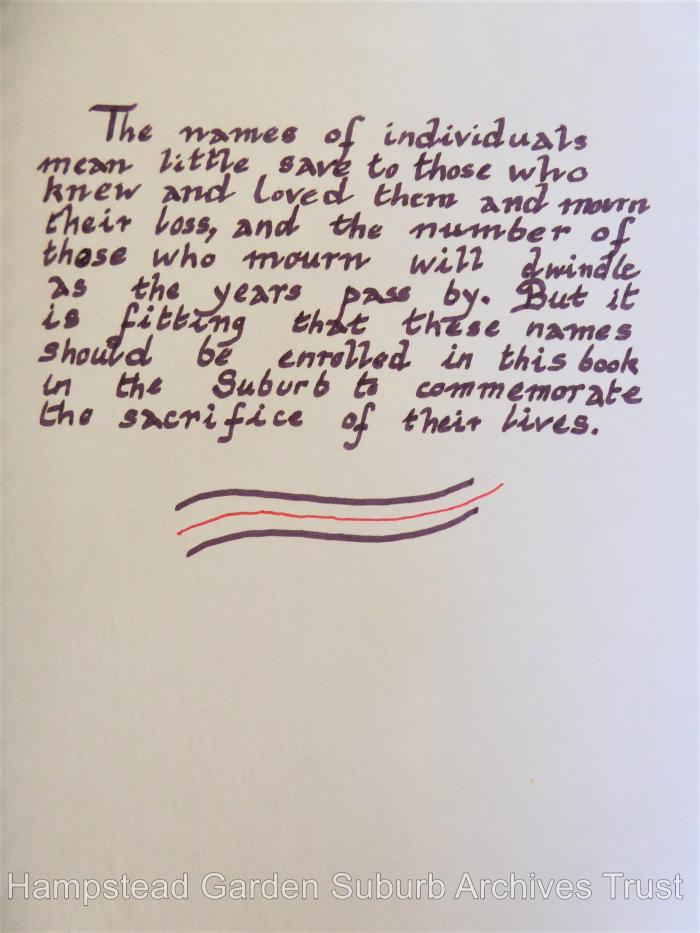 The names of individuals
mean little save to those who
knew and loved them and mourn
their loss, and the number of
those who mourn will dwindle
as the years pass by. But it
is fitting that these names
should be enrolled in this book
in the Suburb to commemorate
the sacrifice of their lives.
Hampstead Garden Suburb Archives Trust